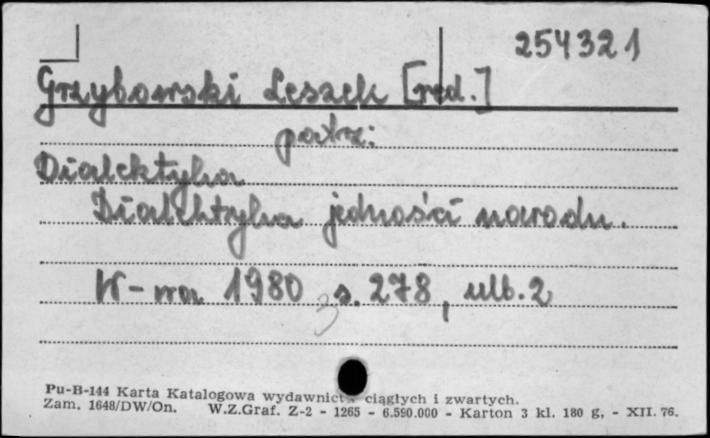 254321
Grzybowski Leszek [red.]
patrz:
Dialektyka
Dialektyka jedności narodu.
W-wa 1980 s. 278, nlb. 2
3
Pu-B-144 Karta Katalogowa wydawnictw ciągłych i zwartych.
Zam. 1648/DW/On. W.Z.Graf. Z-2 - 1265 - 6.590.000 - Karton 3 kl. 180 g, - XII. 76.